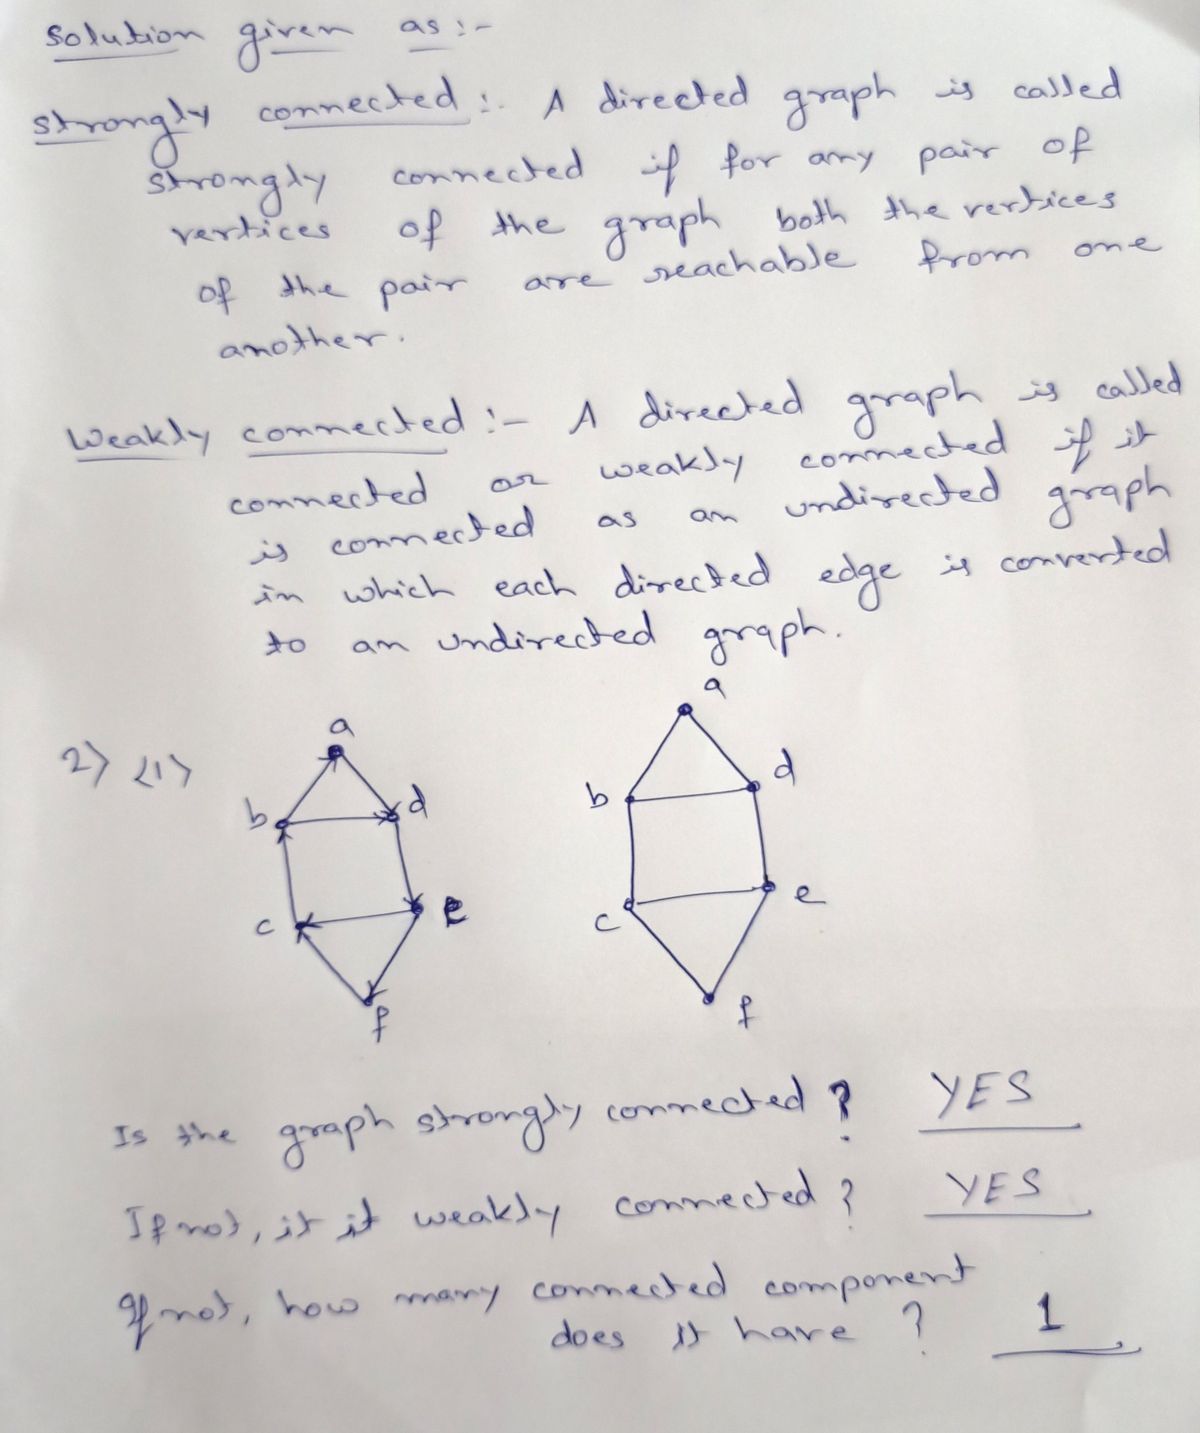 Solution given as :-
Strongly connected :- A directed graph is called
strongly connected if for any pair of
vertices of the graph both the vertices
of the pair are reachable from one
another.
Weakly connected :- A directed graph is called
connected or weakly connected if it
is connected as an undirected graph
in which each directed edge is converted
to an undirected graph.
2) <1>
a
b
d
c
e
f
a
b
d
c
e
f
Is the graph strongly connected ? YES
If not, it it weakly connected ? YES
If not, how many connected component
does it have ? 1